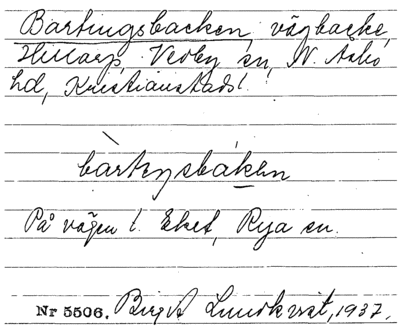 Bartingsbacken, vägbacke,
Hillarp, Vedby sn, N. Åsbo
hd, Kristianstads l.
bàrtiŋsbákən
På vägen t. Eket, Rya sn.
Nr 5506. Birgit Lundkvist, 1937.